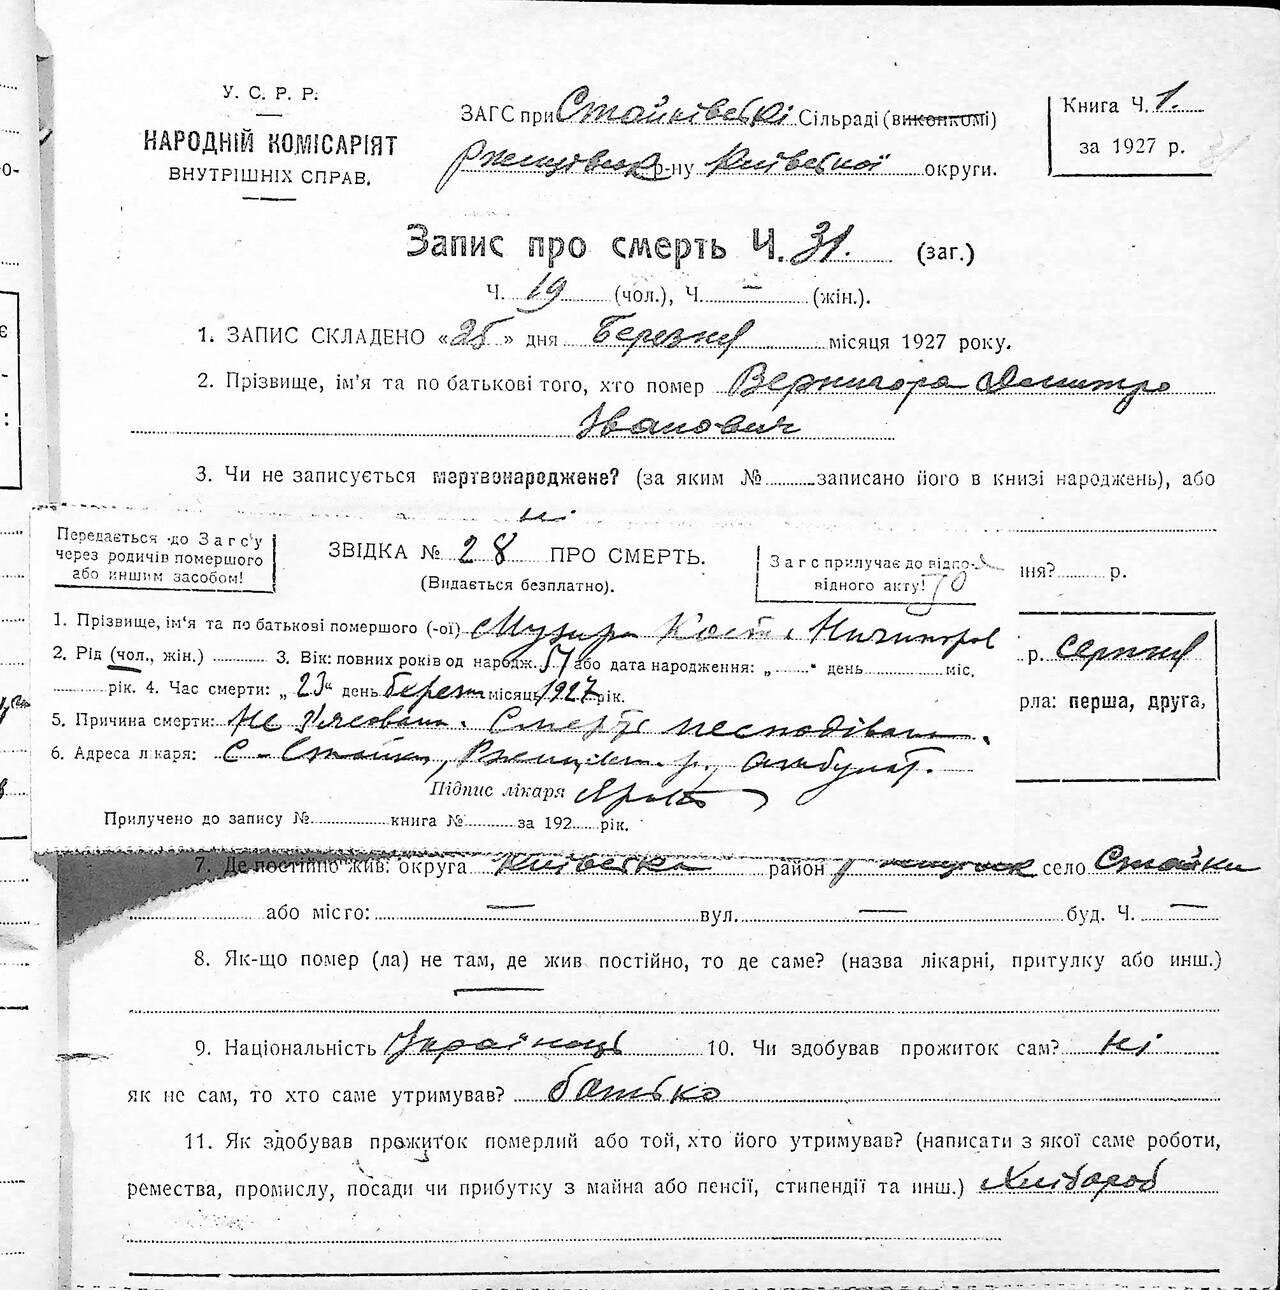 У. С. Р. Р.
НАРОДНІЙ КОМІСАРІЯТ
ВНУТРІШНІХ СПРАВ.
ЗАГС при Стайківській Сільраді (виконкомі)
Ржищівськ р-ну Київської округи.
Книга Ч. 1.
за 1927 р.
Запис про смерть Ч. 31. (заг.)
Ч. 19 (чол.), Ч. — (жін.).
1. ЗАПИС СКЛАДЕНО «25» дня Березня місяця 1927 року.
2. Прізвище, ім'я та по батькові того, хто помер Вернигора Дмитро
Іванович
3. Чи не записується мертвонароджене? (за яким № записано його в книзі народжень), або
ні
Передається до Загс'у
через родичів помершого
або иншим засобом!
ЗВІДКА № 28 ПРО СМЕРТЬ.
(Видається безплатно).
Загс прилучає до відпо-
відного акту!
ня? р.
1. Прізвище, ім'я та по батькові помершого (-ої) Музира Кость Ничипоров
2. Рід (чол., жін.) 3. Вік: повних років од народж. 57 або дата народження: „ " день міс.
р. серпня
рік. 4. Час смерти: „23" день березн місяць 1927 рік.
рла: перша, друга,
5. Причина смерти: Не з'ясована. Смерть несподівана.
6. Адреса лікаря: С. Стайки, Ржищівськ. р., амбулат.
Підпис лікаря
Прилучено до запису № книга № за 192 рік.
7. Де постійно жив: округа Київська район Ржищівськ село Стайки
або місто: — вул. — буд. Ч. —
8. Як-що помер (ла) не там, де жив постійно, то де саме? (назва лікарні, притулку або инш.)
—
9. Національність Українець 10. Чи здобував прожиток сам? ні
як не сам, то хто саме утримував? батько
11. Як здобував прожиток померлий або той, хто його утримував? (написати з якої саме роботи,
ремества, промислу, посади чи прибутку з майна або пенсії, стипендії та инш.) Хлібороб